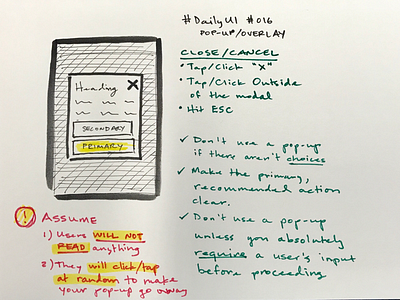 #DailyUI #016
POP-UP/OVERLAY
CLOSE/CANCEL
• Tap/Click "X"
• Tap/Click Outside
of the modal
• Hit ESC
✓ Don't use a pop-up
if there aren't choices
✓ Make the primary,
recommended action
clear.
✓ Don't use a pop-up
unless you absolutely
require a user's input
before proceeding
Heading
X
SECONDARY
PRIMARY
! ASSUME
1) Users WILL NOT
READ anything
2) They will click/tap
at random to make
your pop-up go away